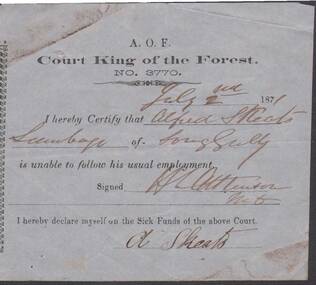 A. O. F.
Court King of the Forest.
NO. 3770.
July 2nd 187
I hereby Certify that Alfred Skeats
Lumbago of Long Gully
is unable to follow his usual employment.
Signed H L Atkinson
I hereby declare myself on the Sick Funds of the above Court.
A Skeats